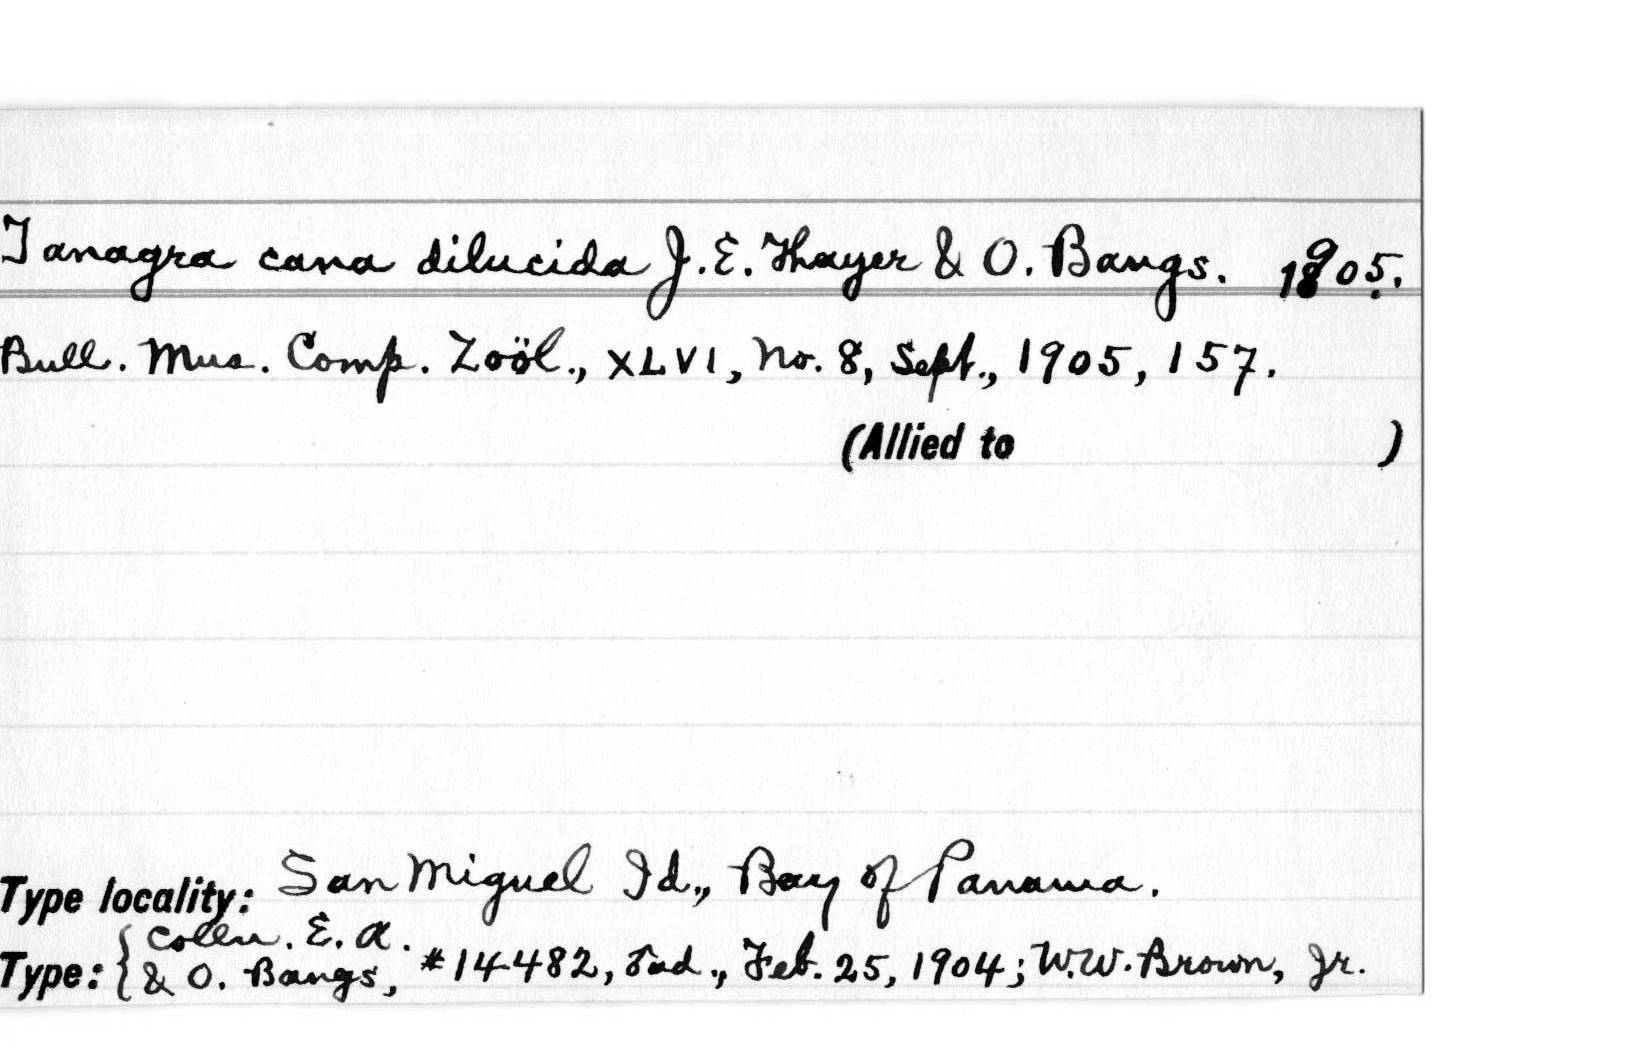 Tanagra cana dilucida J. E. Thayer & O. Bangs. 1905.
Bull. Mus. Comp. Zoöl., XLVI, No. 8, Sept., 1905, 157.
(Allied to )
Type locality: San Miguel Id., Bay of Panama.
Type: { Colln. E. A. & O. Bangs, #14482, ♂ad., Feb. 25, 1904; W. W. Brown, Jr.